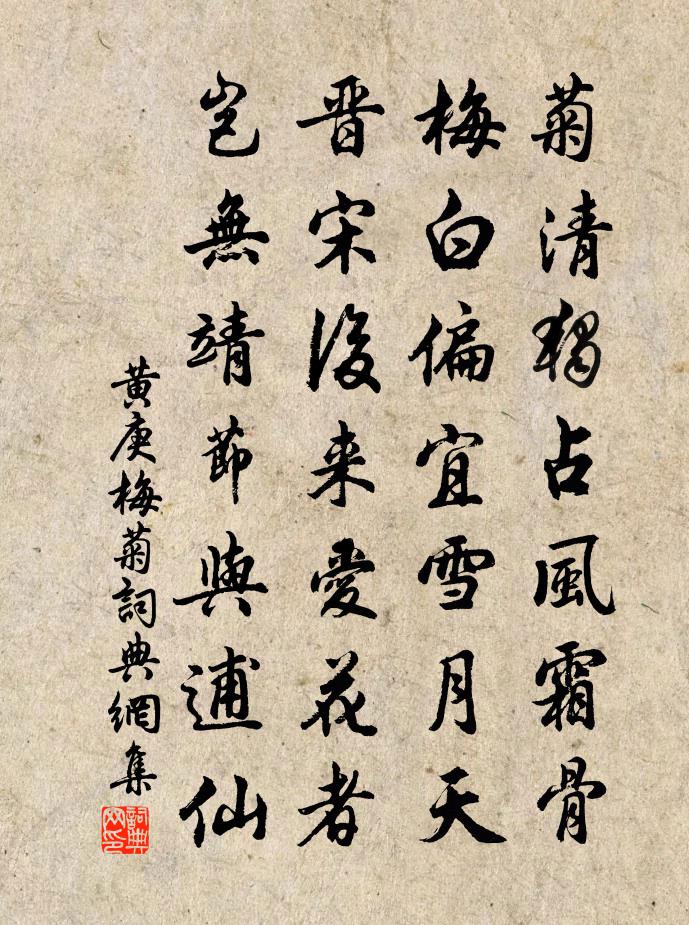 菊清独占風霜骨
梅白偏宜雪月天
晋宋後来愛花者
豈無靖節與逋仙
黄庚梅菊詞典網集
詞典网印